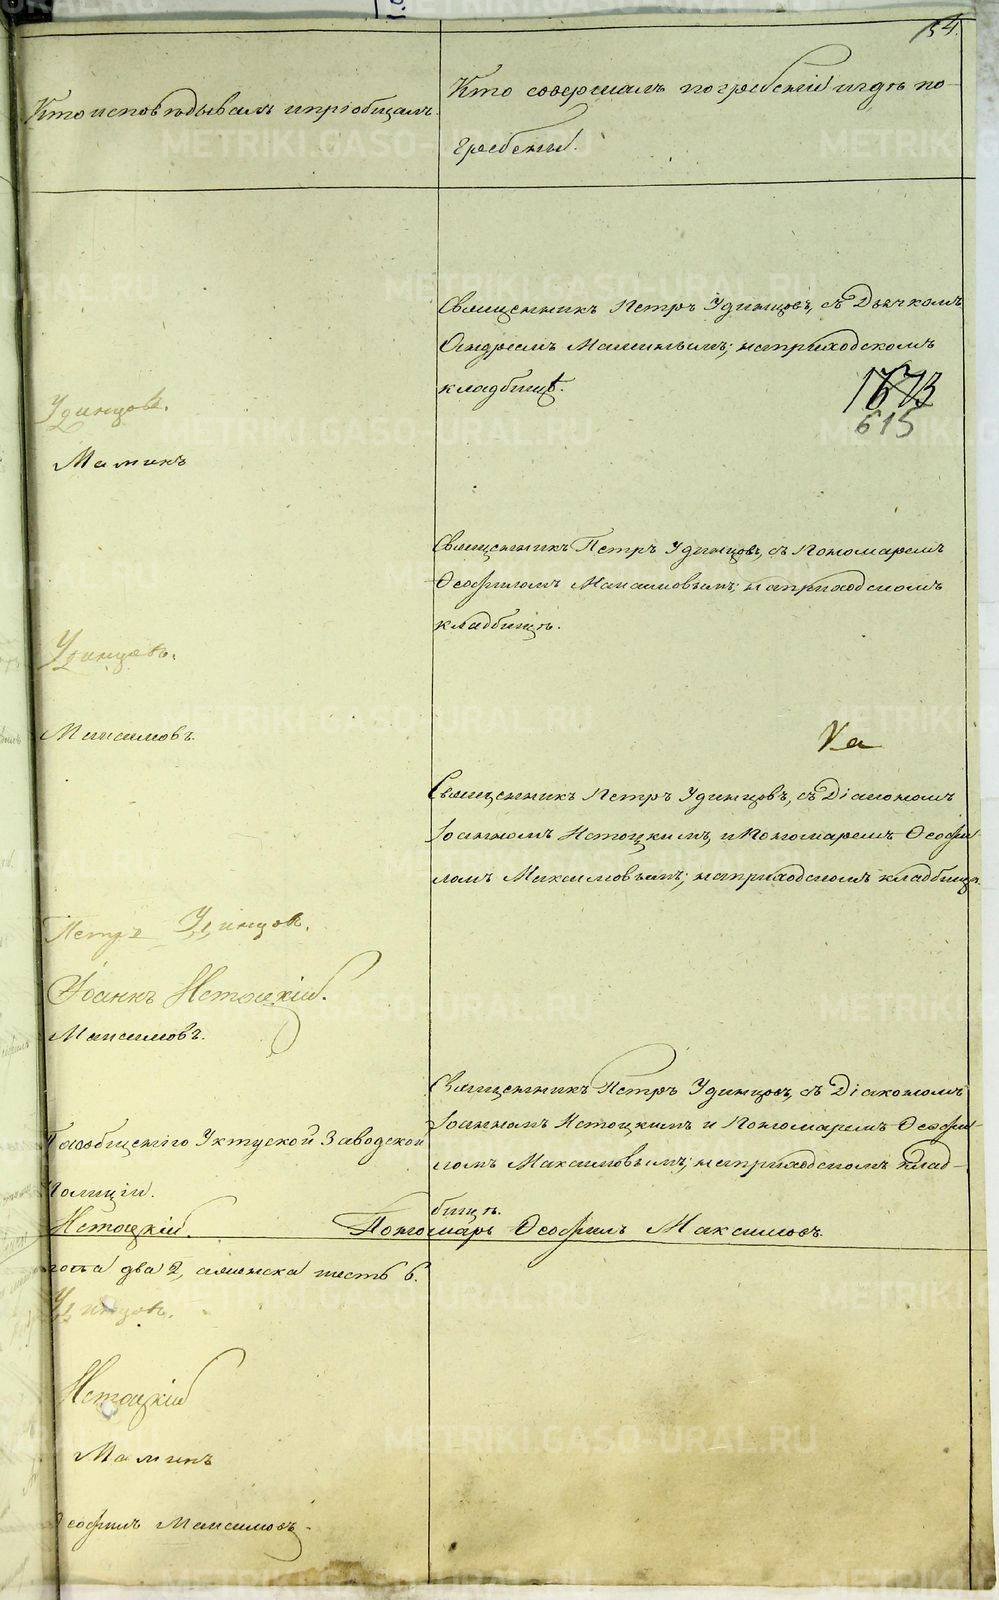 154.
Кто исповѣдывалъ и пріобщалъ.
Кто совершалъ погребеніе и гдѣ по-
гребены.
Священникъ Петръ Удинцовъ, съ Дьячкомъ
Андреемъ Маминымъ; на приходскомъ
кладбищѣ.
1673
615
Удинцовъ.
Маминъ
Священникъ Петръ Удинцовъ, съ Пономаремъ
Ѳеофиломъ Максимовымъ; на приходскомъ
кладбищѣ.
Удинцовъ.
Максимовъ.
Священникъ Петръ Удинцовъ, съ Діакономъ
Іоанномъ Нетоцкимъ, и Пономаремъ Ѳеофи-
ломъ Максимовымъ; на приходскомъ кладбищѣ.
Петръ Удинцовъ.
Іоаннъ Нетоцкій.
Максимовъ.
Священникъ Петръ Удинцовъ, съ Діакономъ
Іоанномъ Нетоцкимъ и Пономаремъ Ѳеофи-
ломъ Максимовымъ; на приходскомъ клад-
бищѣ.
Уктуской Заводской
Полиціи.
Нетоцкій. Пономарь Ѳеофилъ Максимовъ.
два 2, а женска шесть 6.
Удинцовъ.
Нетоцкій
Маминъ
Ѳеофилъ Максимовъ.
METRIKI.GASO-URAL.RU